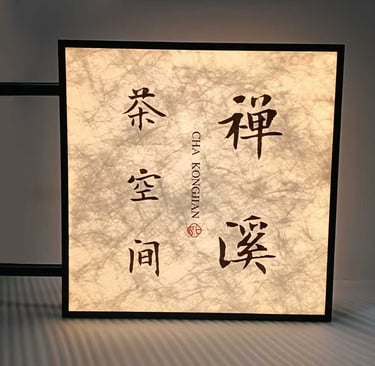 禅溪
茶空间
CHA KONGJIAN